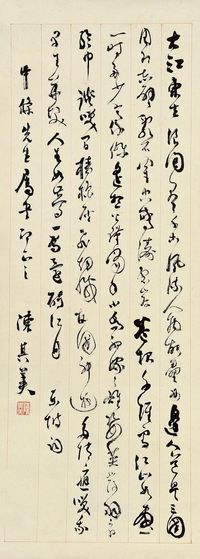 大江東去浪淘盡千古風流人物故壘西邊人道是三國
周郎赤壁亂石驚濤岸千堆雪江山如畫
一時多少豪傑遙想公瑾當年小喬初嫁了雄姿英發羽扇
綸巾談笑間檣櫓灰飛煙滅故國神遊多情應笑我
早生華髮人生如夢一尊還酹江月 東坡詞
中條先生屬書即正之
陳其美